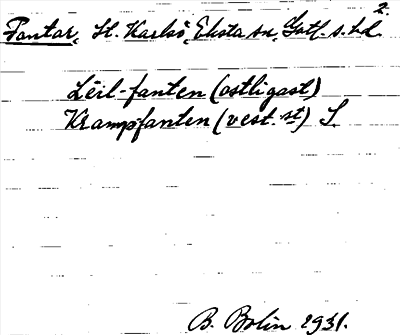 Fantar, St. Karlsö, Eksta sn, Gotl. s. hd. 2.
Leil-fanten (ostligast)
Krampfanten (vest.st) S.
B. Bolin 1931.